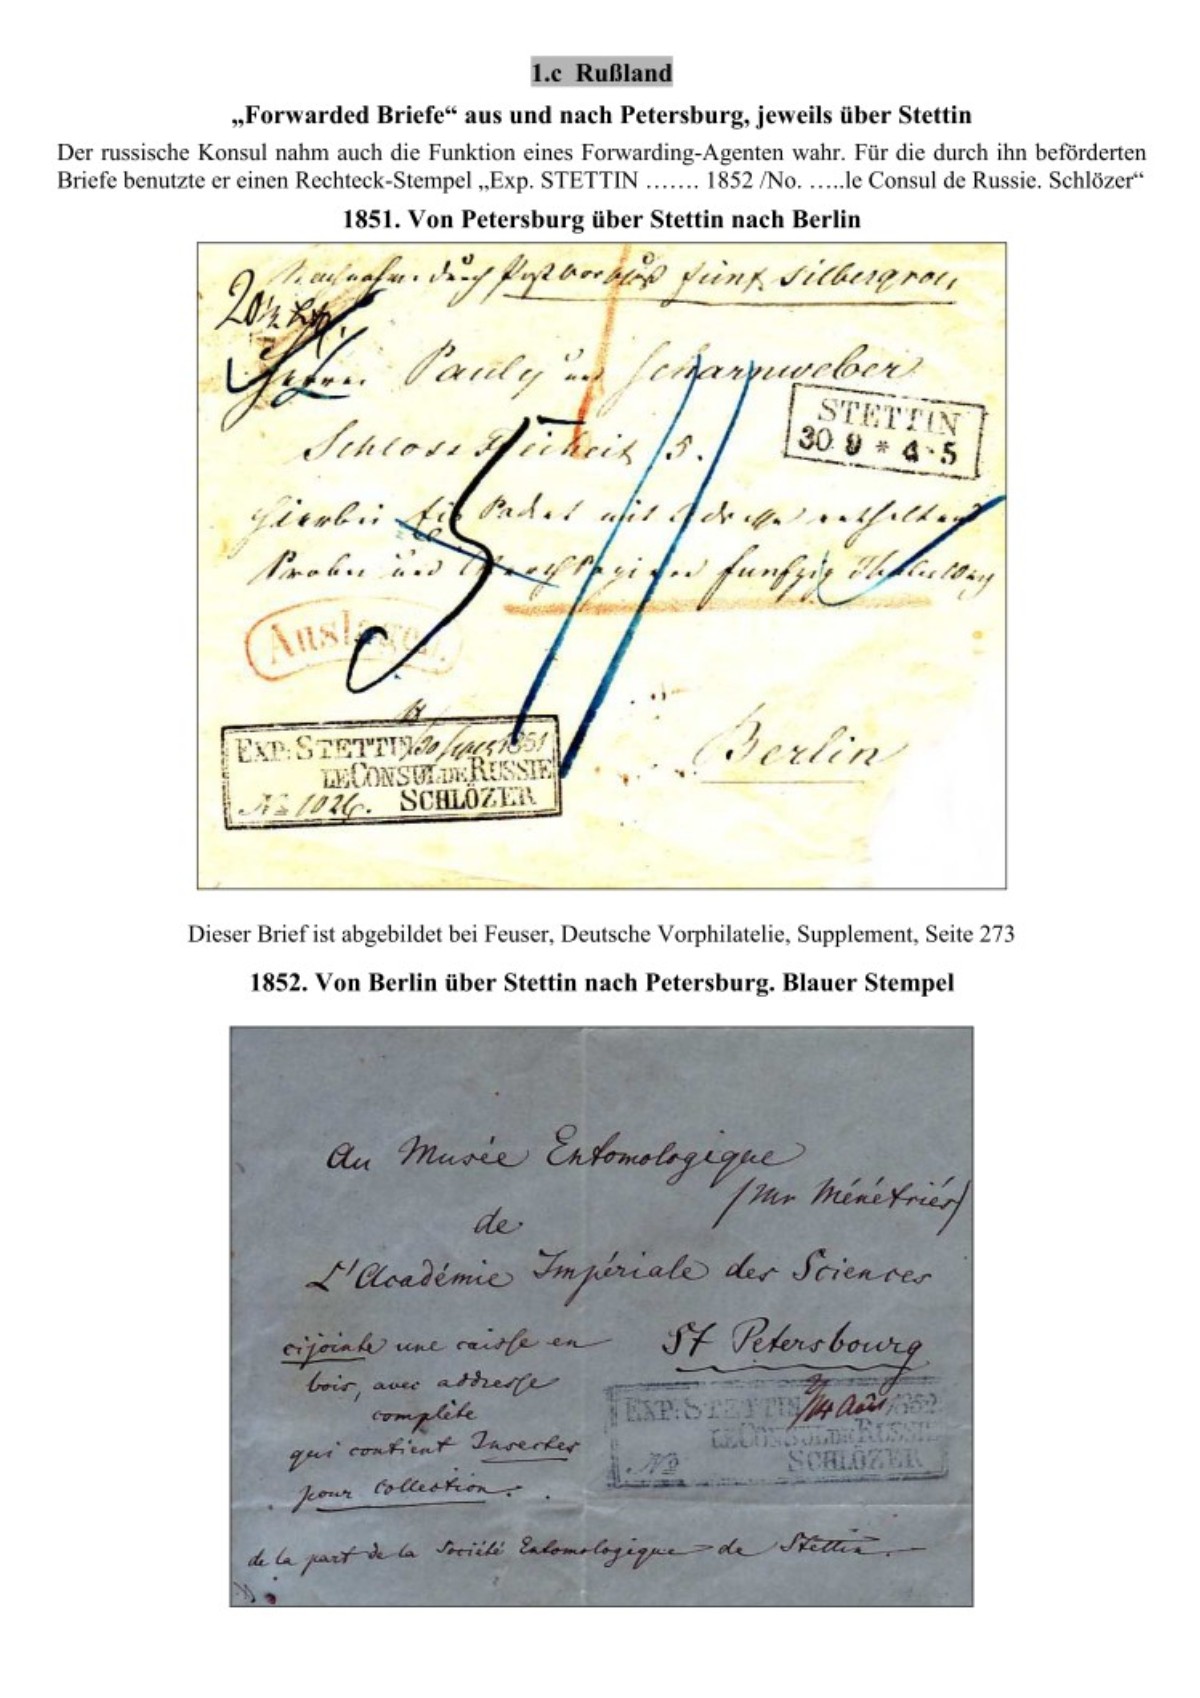 1.c Rußland
„Forwarded Briefe“ aus und nach Petersburg, jeweils über Stettin
Der russische Konsul nahm auch die Funktion eines Forwarding-Agenten wahr. Für die durch ihn beförderten
Briefe benutzte er einen Rechteck-Stempel „Exp. STETTIN ……. 1852 /No. …..le Consul de Russie. Schlözer“
1851. Von Petersburg über Stettin nach Berlin
durch Postvorschuß fünf Silbergros
20½
Herren Pauly u Scharnweber
STETTIN
30 9 * 4-5
Schloss Freiheit 5.
Hierbei ein Packet mit
Proben und fünfzig
Auslagen.
5
EXP: STETTIN 1851
LE CONSUL DE RUSSIE
No 1026. SCHLÖZER
Berlin
Dieser Brief ist abgebildet bei Feuser, Deutsche Vorphilatelie, Supplement, Seite 273
1852. Von Berlin über Stettin nach Petersburg. Blauer Stempel
Au Musée Entomologique
(Mr Ménétriés)
de
L'Académie Impériale des Sciences
St Petersbourg
cijointe une caisse en
bois, avec addresse
complète
qui contient Insectes
pour collection.
EXP: STETTIN 14 Août 1852.
LE CONSUL DE RUSSIE
No SCHLÖZER
de la part de la Société Entomologique de Stettin.